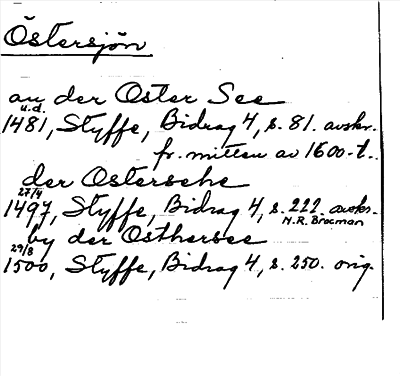 Östersjön
an der Oster See
u.d.
1481, Styffe, Bidrag 4, s. 81. avskr.
fr. mitten av 1600-t..
der Ostersehe
27/4
1497, Styffe, Bidrag 4, s. 222. avskr.
N.R. Brocman
by der Osthersee
29/8
1500, Styffe, Bidrag 4, s. 250. orig.